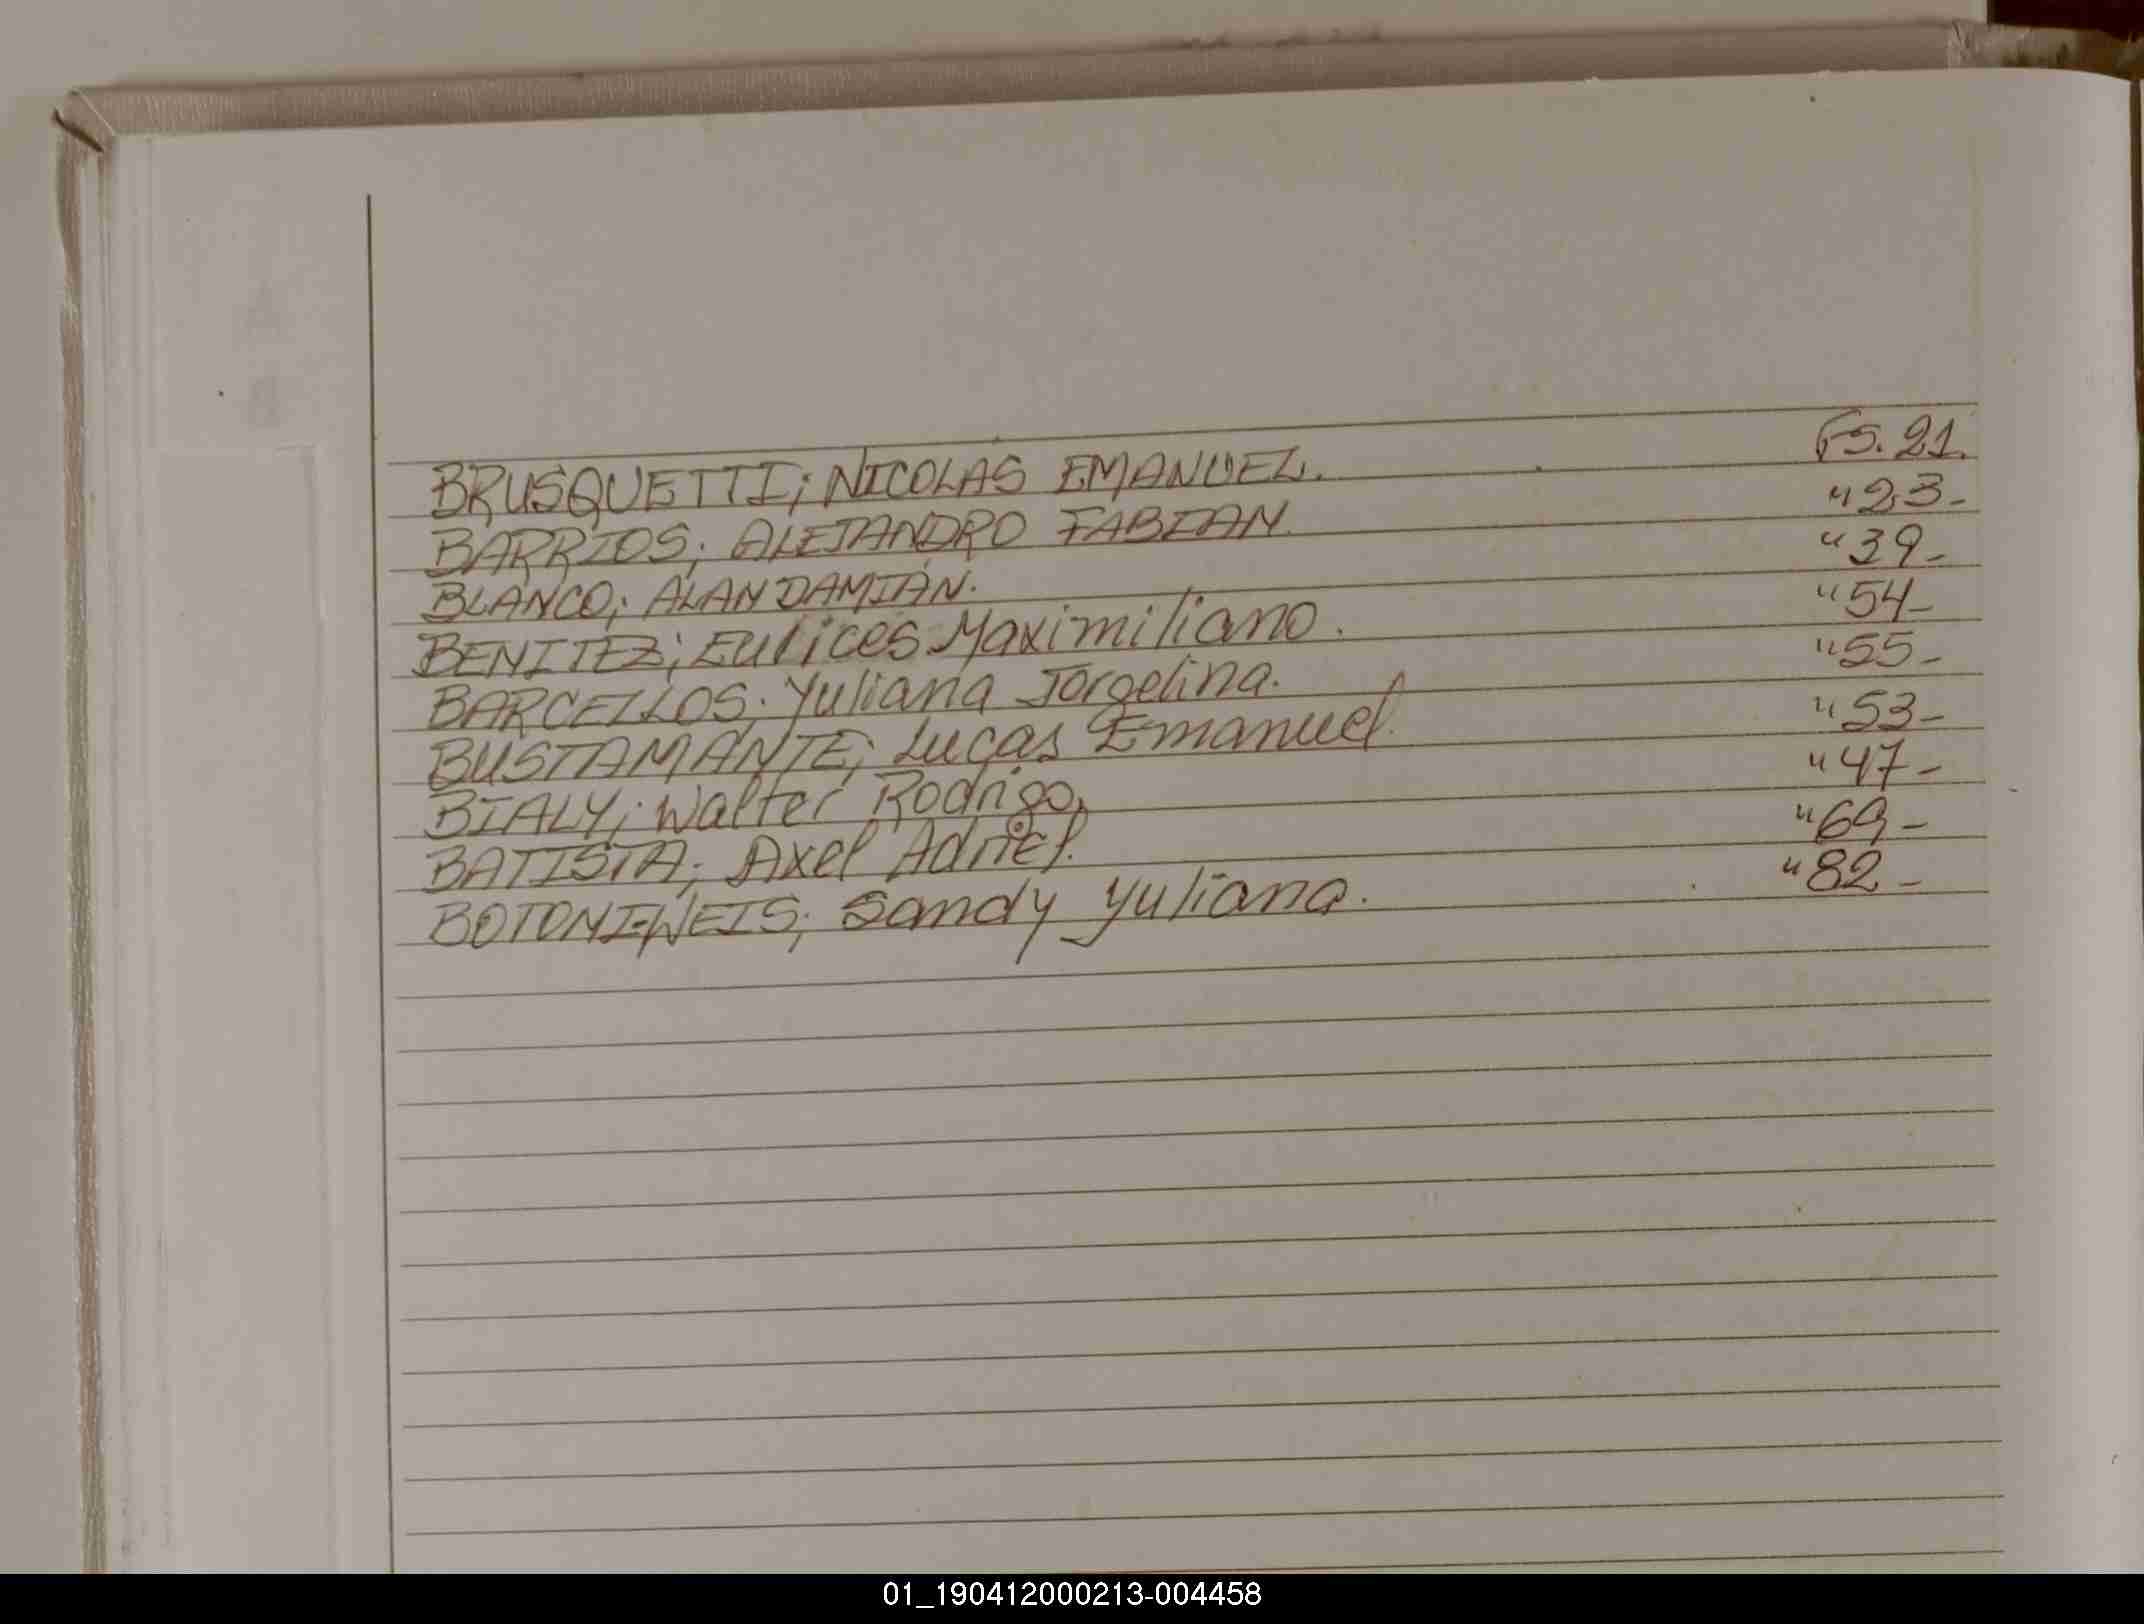 BRUSQUETTI; NICOLAS EMANUEL. Fs. 21.
BARRIOS; ALEJANDRO FABIAN. " 23-
BLANCO; ALAN DAMIÁN. " 39-
BENITEZ; Eulices Maximiliano. " 54-
BARCELLOS; Yuliana Jorgelina. " 55-
BUSTAMANTE; Lucas Emanuel. " 53-
BIALY; Walter Rodrigo. " 47-
BATISTA; Axel Adriel. " 69-
BOTONI-WEIS; Sandy Yuliana. " 82-
01_190412000213-004458